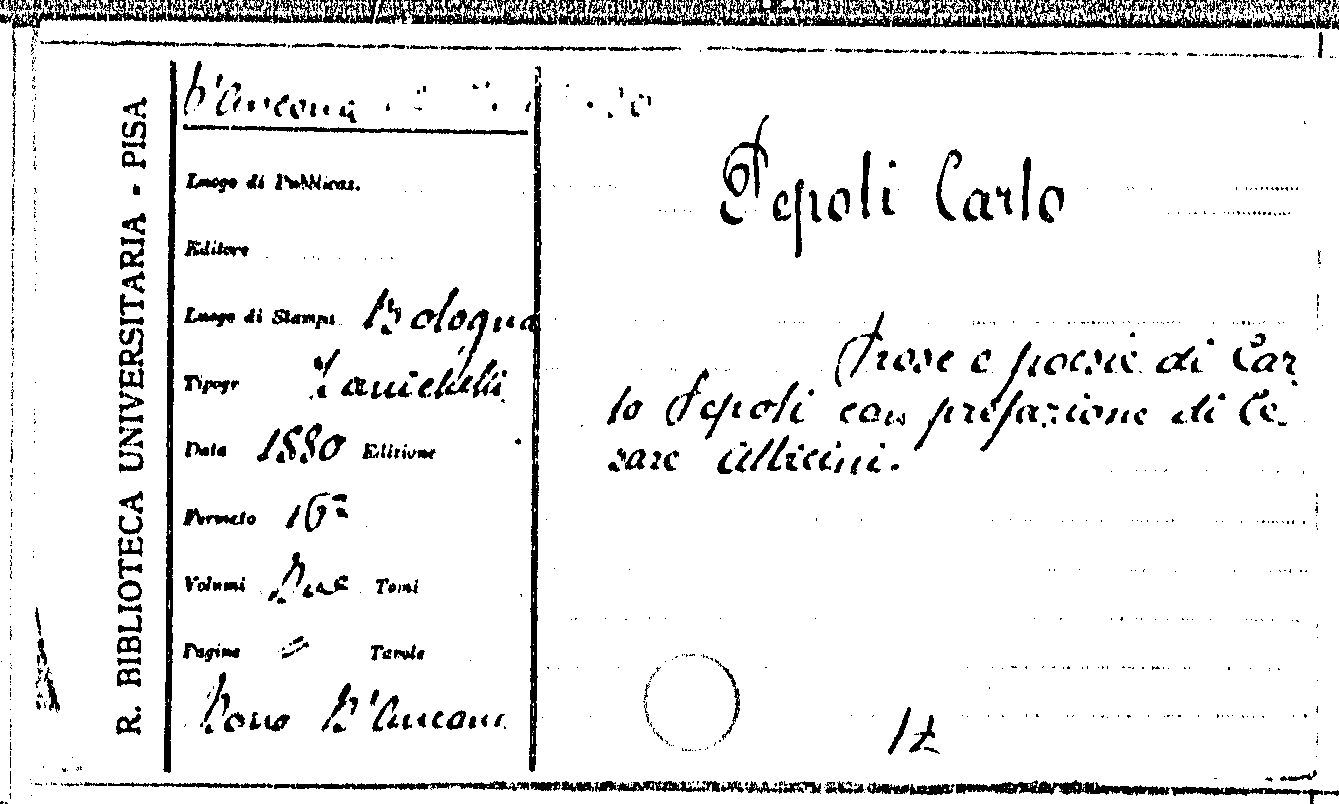 R. BIBLIOTECA UNIVERSITARIA - PISA
D'Ancona
Luogo di Pubblicaz.
Editore
Luogo di Stampa Bologna
Tipogr Zanichelli
Data 1880 Edizione
Formato 16º
Volumi Due Tomi
Pagine = Tavole
Dono D'Ancona
Pepoli Carlo
Prose e poesie di Car
lo Pepoli con prefazione di Ce
sare Albicini.